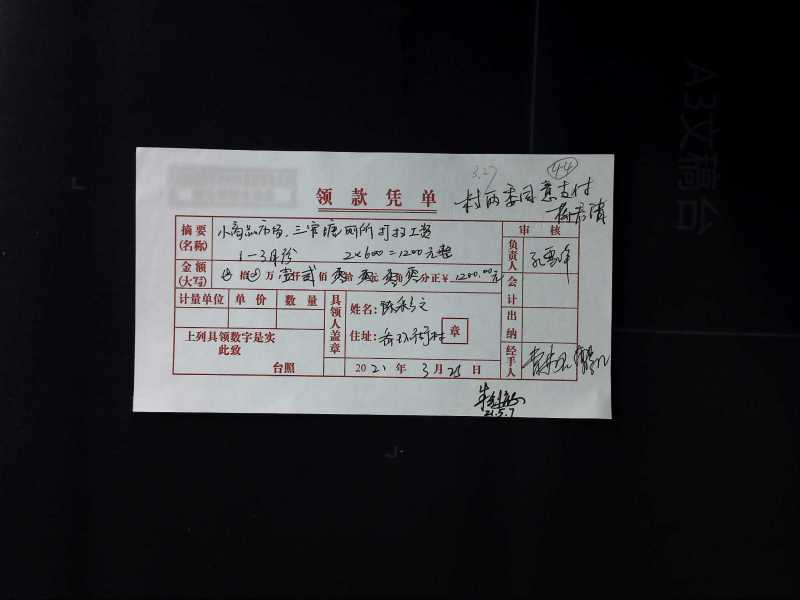 3.27
44
领款凭单
村两委同意支付
摘要
(名称)
小商品市场、三官塘厕所打扫工资
1—3月份
2×600=1200元整
审核
负责人
金额
(大写)
拾 万 壹仟 贰佰 零拾 零元 零角 零分正¥1200.00元
会计
计量单位 单价 数量
具领人盖章
姓名:
住址:
章
出纳
上列具领数字是实
此致
台照
2021年3月25日
经手人
21.5.7
A3文稿台